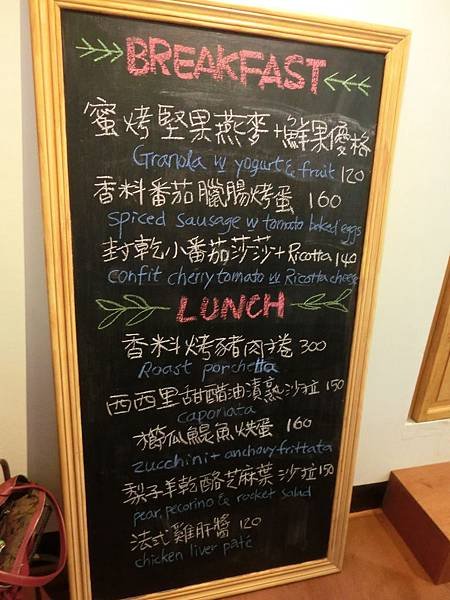 BREAKFAST
蜜烤堅果燕麥+鮮果優格
Granola w yogurt & fruit 120
香料番茄臘腸烤蛋 160
spiced sausage w tomato baked eggs
封乾小番茄莎莎+Ricotta 140
confit cherry tomato w Ricotta cheese
LUNCH
香料烤豬肉捲 300
Roast porchetta
西西里甜醋油漬熟沙拉 150
caponata
櫛瓜鯷魚烘蛋 160
zucchini + anchovy frittata
梨子羊乾酪芝麻葉沙拉 150
pear, pecorino & rocket salad
法式雞肝醬 120
chicken liver paté